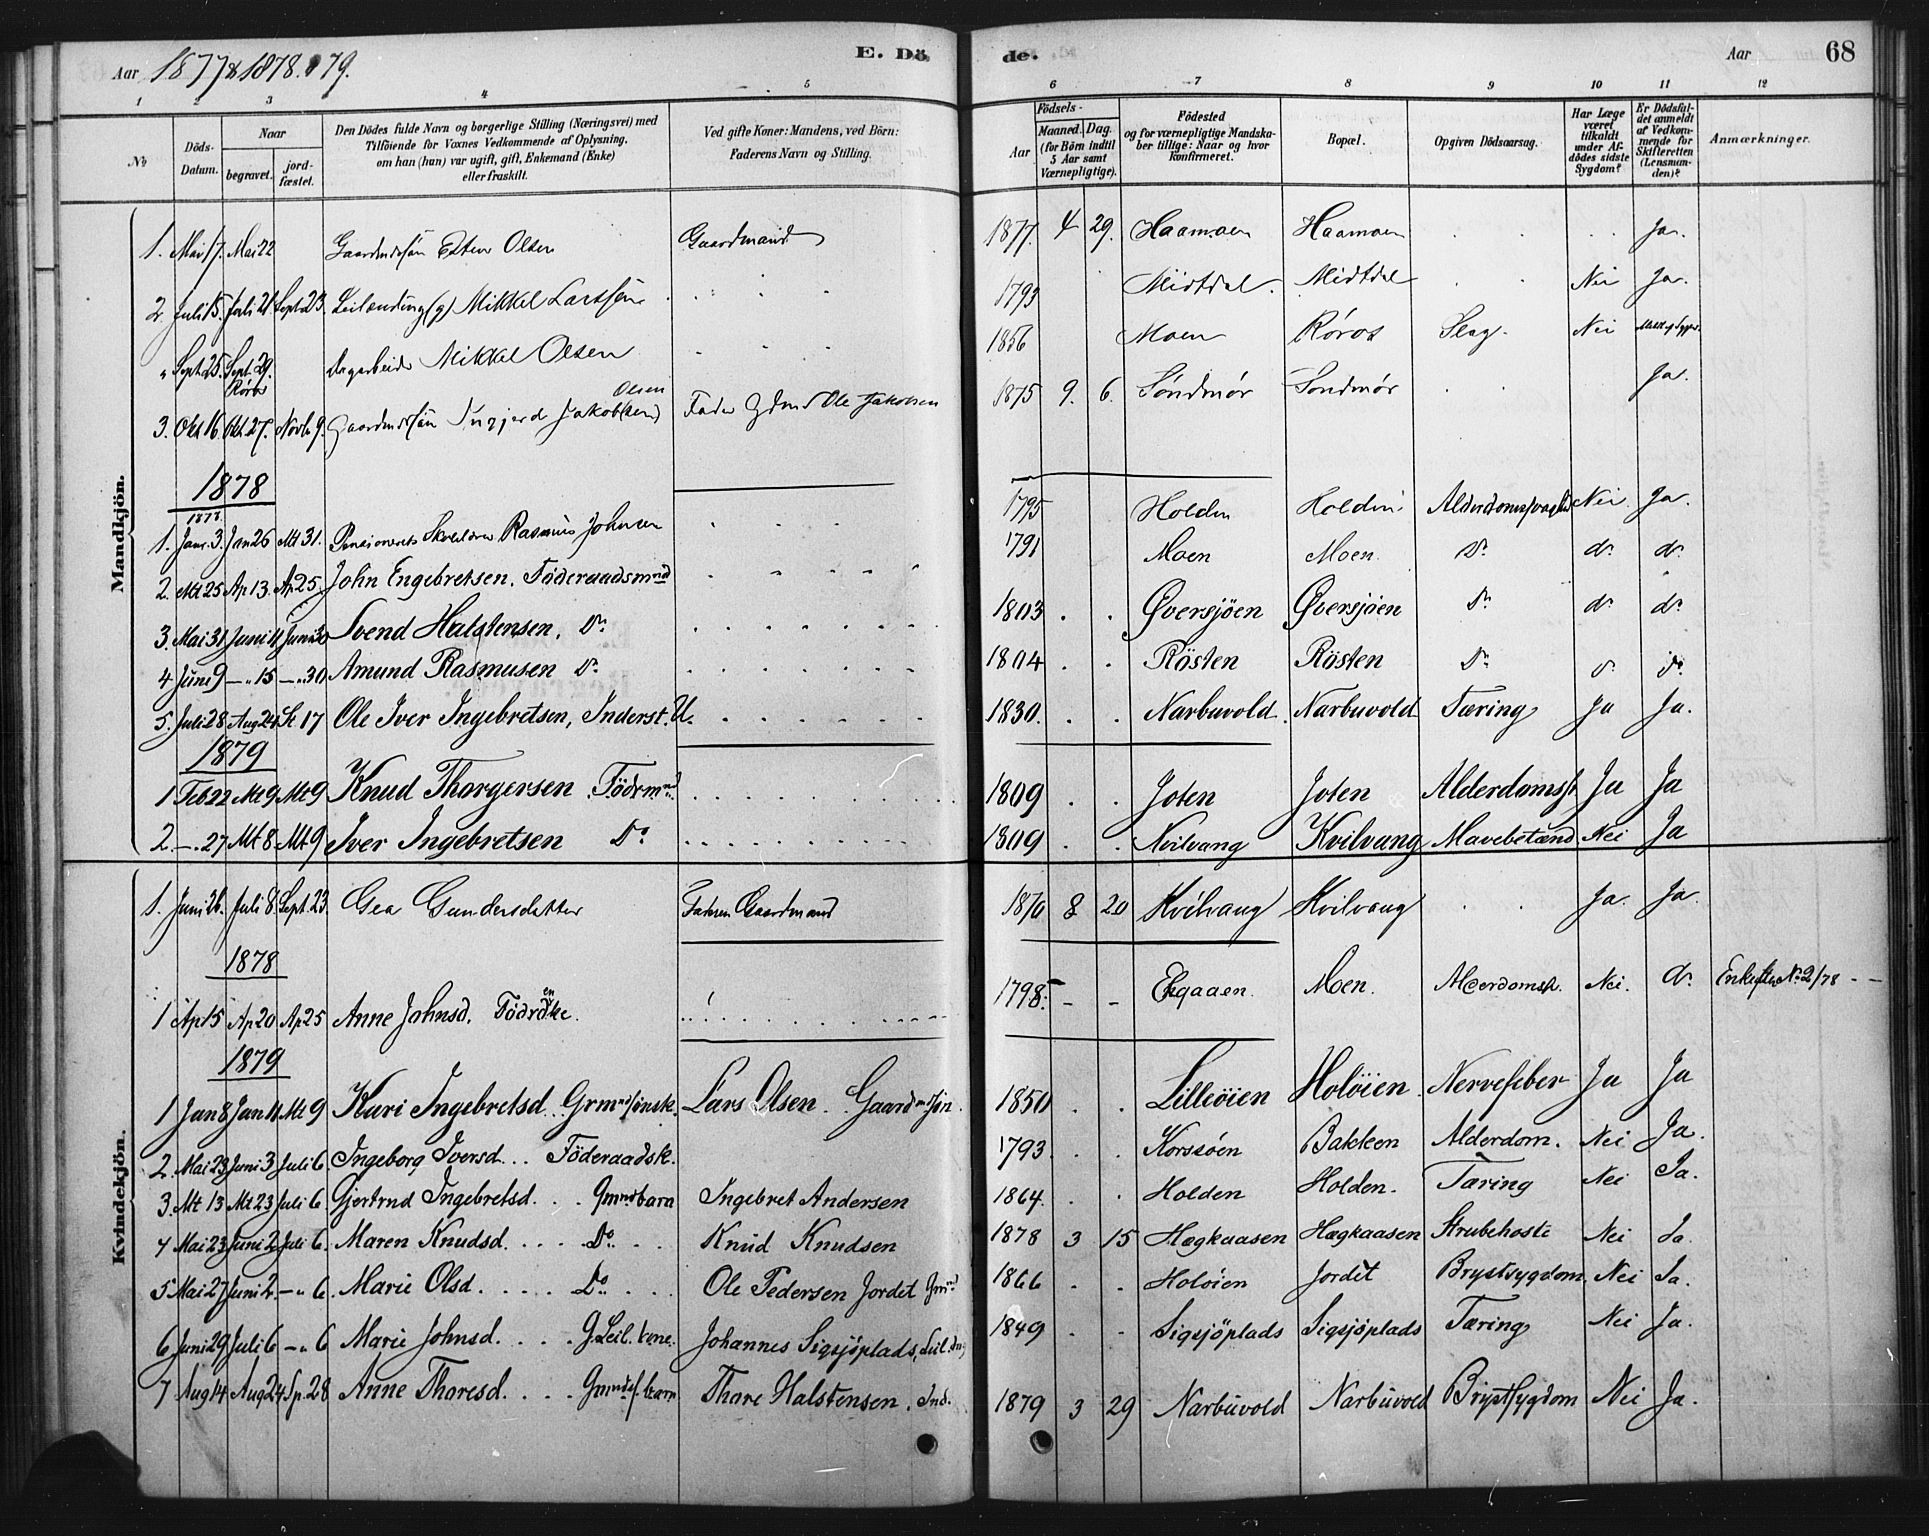 Aar 1877 & 1878. 79. E. Dö de. Aar 68
1 2 3 4 5 6 7 8 9 10 11 12
No Döds-Datum. Naar begravet. jord-fæstet. Den Dödes fulde Navn og borgerlige Stilling (Næringsvei) med Tilföiende for Voxnes Vedkommende af Oplysning, om han (hun) var ugift, gift, Enkemand (Enke) eller fraskilt. Ved gifte Koner: Mandens, ved Börn: Faderens Navn og Stilling. Aar Födsels- Maaned. Dag. (for Börn indtil 5 Aar samt Værnepligtige). Födested og for værnepligtige Mandska-ber tillige: Naar og hvor Konfirmeret. Bopæl. Opgiven Dödsaarsag. Har Læge været tilkaldt under Af-dödes sidste Sygdom? Er Dödsful-det anmeldt af Vedkom-mende for Skifteretten (Lensman-den)? Anmærkninger.
Mandkjön.
1. Mai 17. Mai 22 Gaardmdsön Olsen Gaardmand 1877. 4 29. Haamoen Haamoen Ja.
2. Juli 15. Juli 21. Sept 23. Leilænding (g) Mikkel Larssen 1793 Midtdal. Midtdal Nei Ja.
" Sept 25. Sept. 29. Röros Dagarbeider Mikkel Olsen 1856 Moen Röros Slag. Nei
3. Okt 16. Okt. 27. Novb 9. Gaardmdsön Ingjerd Jakob(sen) Olsen Fader Ole Jakobsen 1875 9. 6. Söndmör Söndmör Ja.
1878
1. Janr. 3. Jan 26 Mt 31. Pensioneret Rasmus Johnsen 1795 Holden Holden Nei Ja.
2. Mt 25 Ap 13. Ap 25. John Engebretsen. Föderaadsmnd 1791 Moen Moen. Do do do
3. Mai 31. Juni 11. Juni 30 Svend Halstensen, Do 1803 Översjöen Översjöen Do do do
4 June 9 — " 15 — " 30 Amund Rasmusen Do 1804 Rösten Rösten Do do do
5. Juli 28. Aug 24. St 17 Ole Iver Ingebretsen, Inderst. U. 1830. Narbuvold. Narbuvold Tæring Ja Ja.
1879
1 Feb 22 Mt 9 Mt 9 Knud Thorgersen. Födrmnd 1809 Joten Joten Alderdomsst. Ja Ja
2. — " 27 Mt 8 Mt 9 Iver Ingebretsen Do 1809 Kvilvang Kvilvang Mavebetænd. Nei Ja
Kvindekjön.
1. Juni 26. Juli 8. Sept. 23. Gea Gundersdatter Faderen Gaardmand 1870 8 20 Kvilvang Kvilvang Ja. Ja.
1878
1 Ap 15 Ap 20 Ap 25 Anne Johnsd. 1798. Moen. Nei. do No 2/78
1879
1 Jan 8 Jan 11 Mt 9 Kari Ingebretsd. Grmndsönsk. Lars Olsen. Gaardmdsön. 1850 Lilleöien Holöien. Nervefeber Ja Ja
2. Mai 23 Juni 3 Juli 6 Ingeborg Iversd... Föderaadsk. 1793. Korssöen Bakken Alderdom. Nei Ja.
3. Mt 13 Mt 23 Juli 6. Gjertrud Ingebretsd. Gmndbarn Ingebret Andersen 1864. Holden Holden. Tæring Nei Ja.
4 Mai 23 Juni 2 Juli 6. Maren Knudsd. Do Knud Knudsen 1878 3 15 Hægkaasen Hægkaasen Strubehoste Nei Ja.
5 Mai 27 Juni 2. — " 6. Marie Olsd. Do Ole Pedersen Jordet Gmnd 1866 Holöien Jordet Brystsygdom Nei Ja.
6 Juni 29 Juli 6 — " 6 Marie Johnsd. G. Leil. kone. Johannes Sigsjöplads, 1849 Sigsjöplads Sigsjöplads Tæring Nei Ja.
7 Aug 14 Aug 24 Sp. 28 Anne Thoresd. barn Thore Halstensen, Ind. 1879 3 29 Narbuvold Narbuvold Brystsygdom Nei Ja.